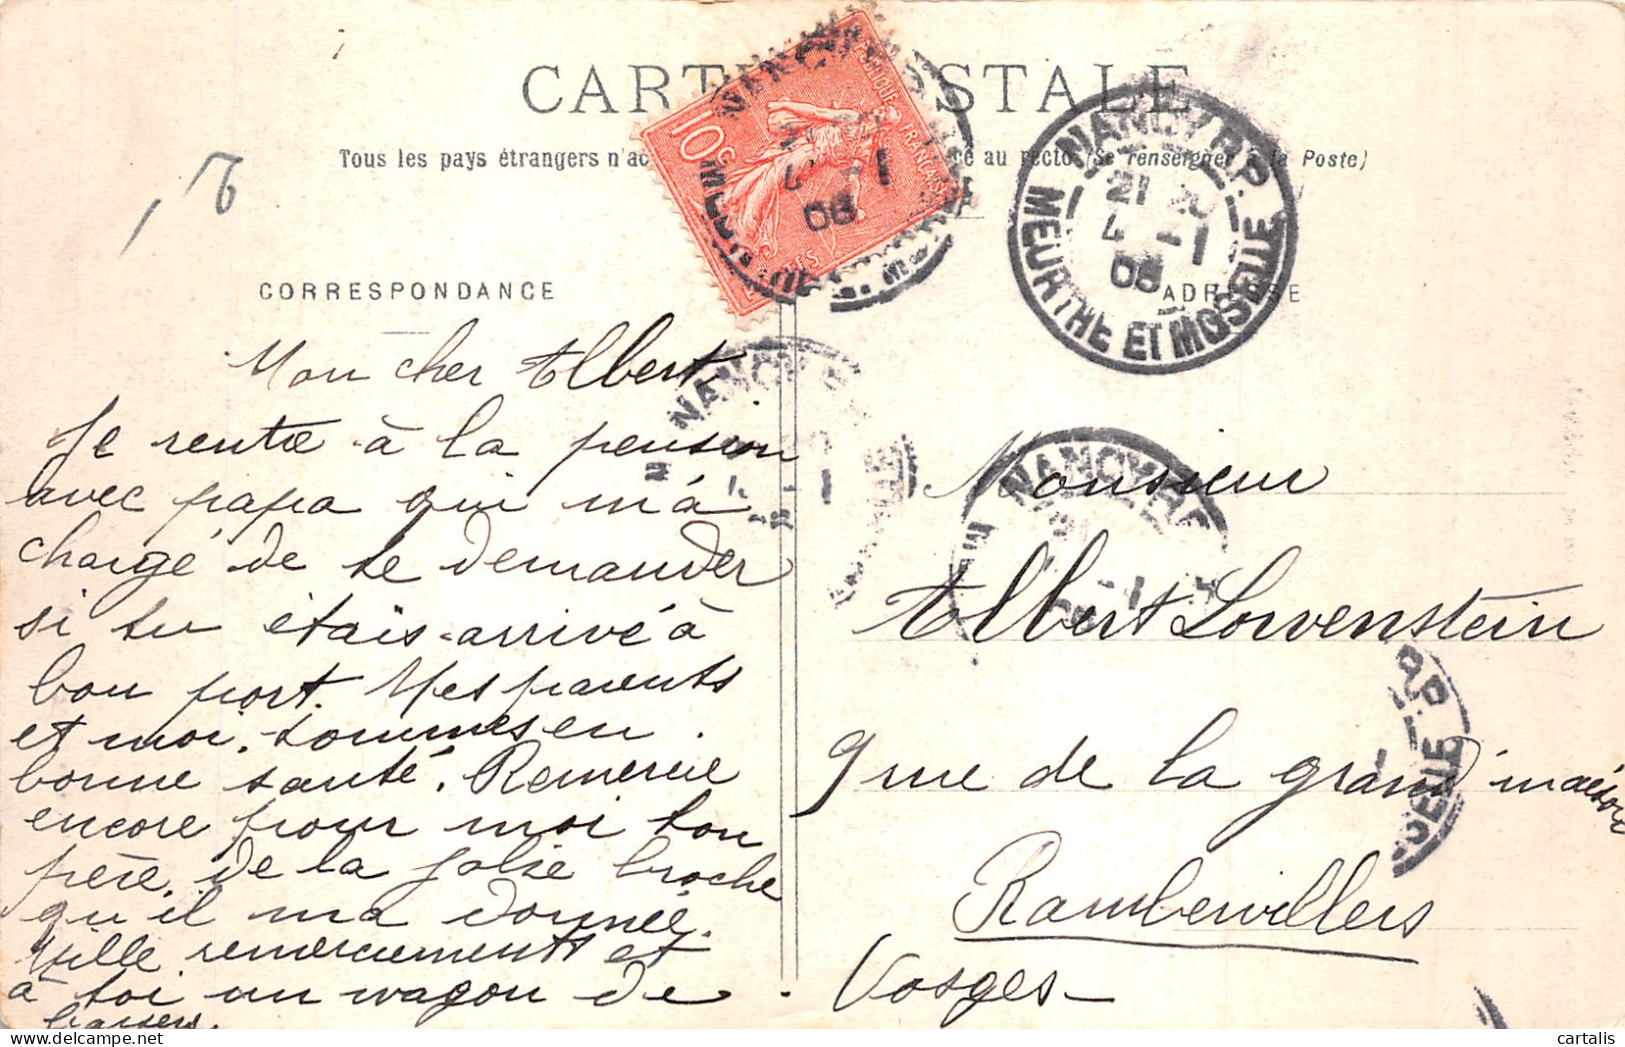 CARTE POSTALE
Tous les pays étrangers n'ac au recto (Se renseigner à la Poste)
CORRESPONDANCE
ADRESSE
10c
NANCY R.P.
21
4 -1
06
MEURTHE ET MOSELLE
Mon cher Albert
Je rentre à la pension
avec papa qui m'à
chargé de te demander
si tu étais arrivé à
bon port. Mes parents
et moi, sommes en
bonne santé. Remercie
encore pour moi ton
père, de la jolie broche
qu'il ma donnée.
Mille remerciements et
à toi un wagon de
baisers.
Monsieur
Albert Lowenstein
9 rue de la grand maison
Rambervillers
Vosges
cartalis